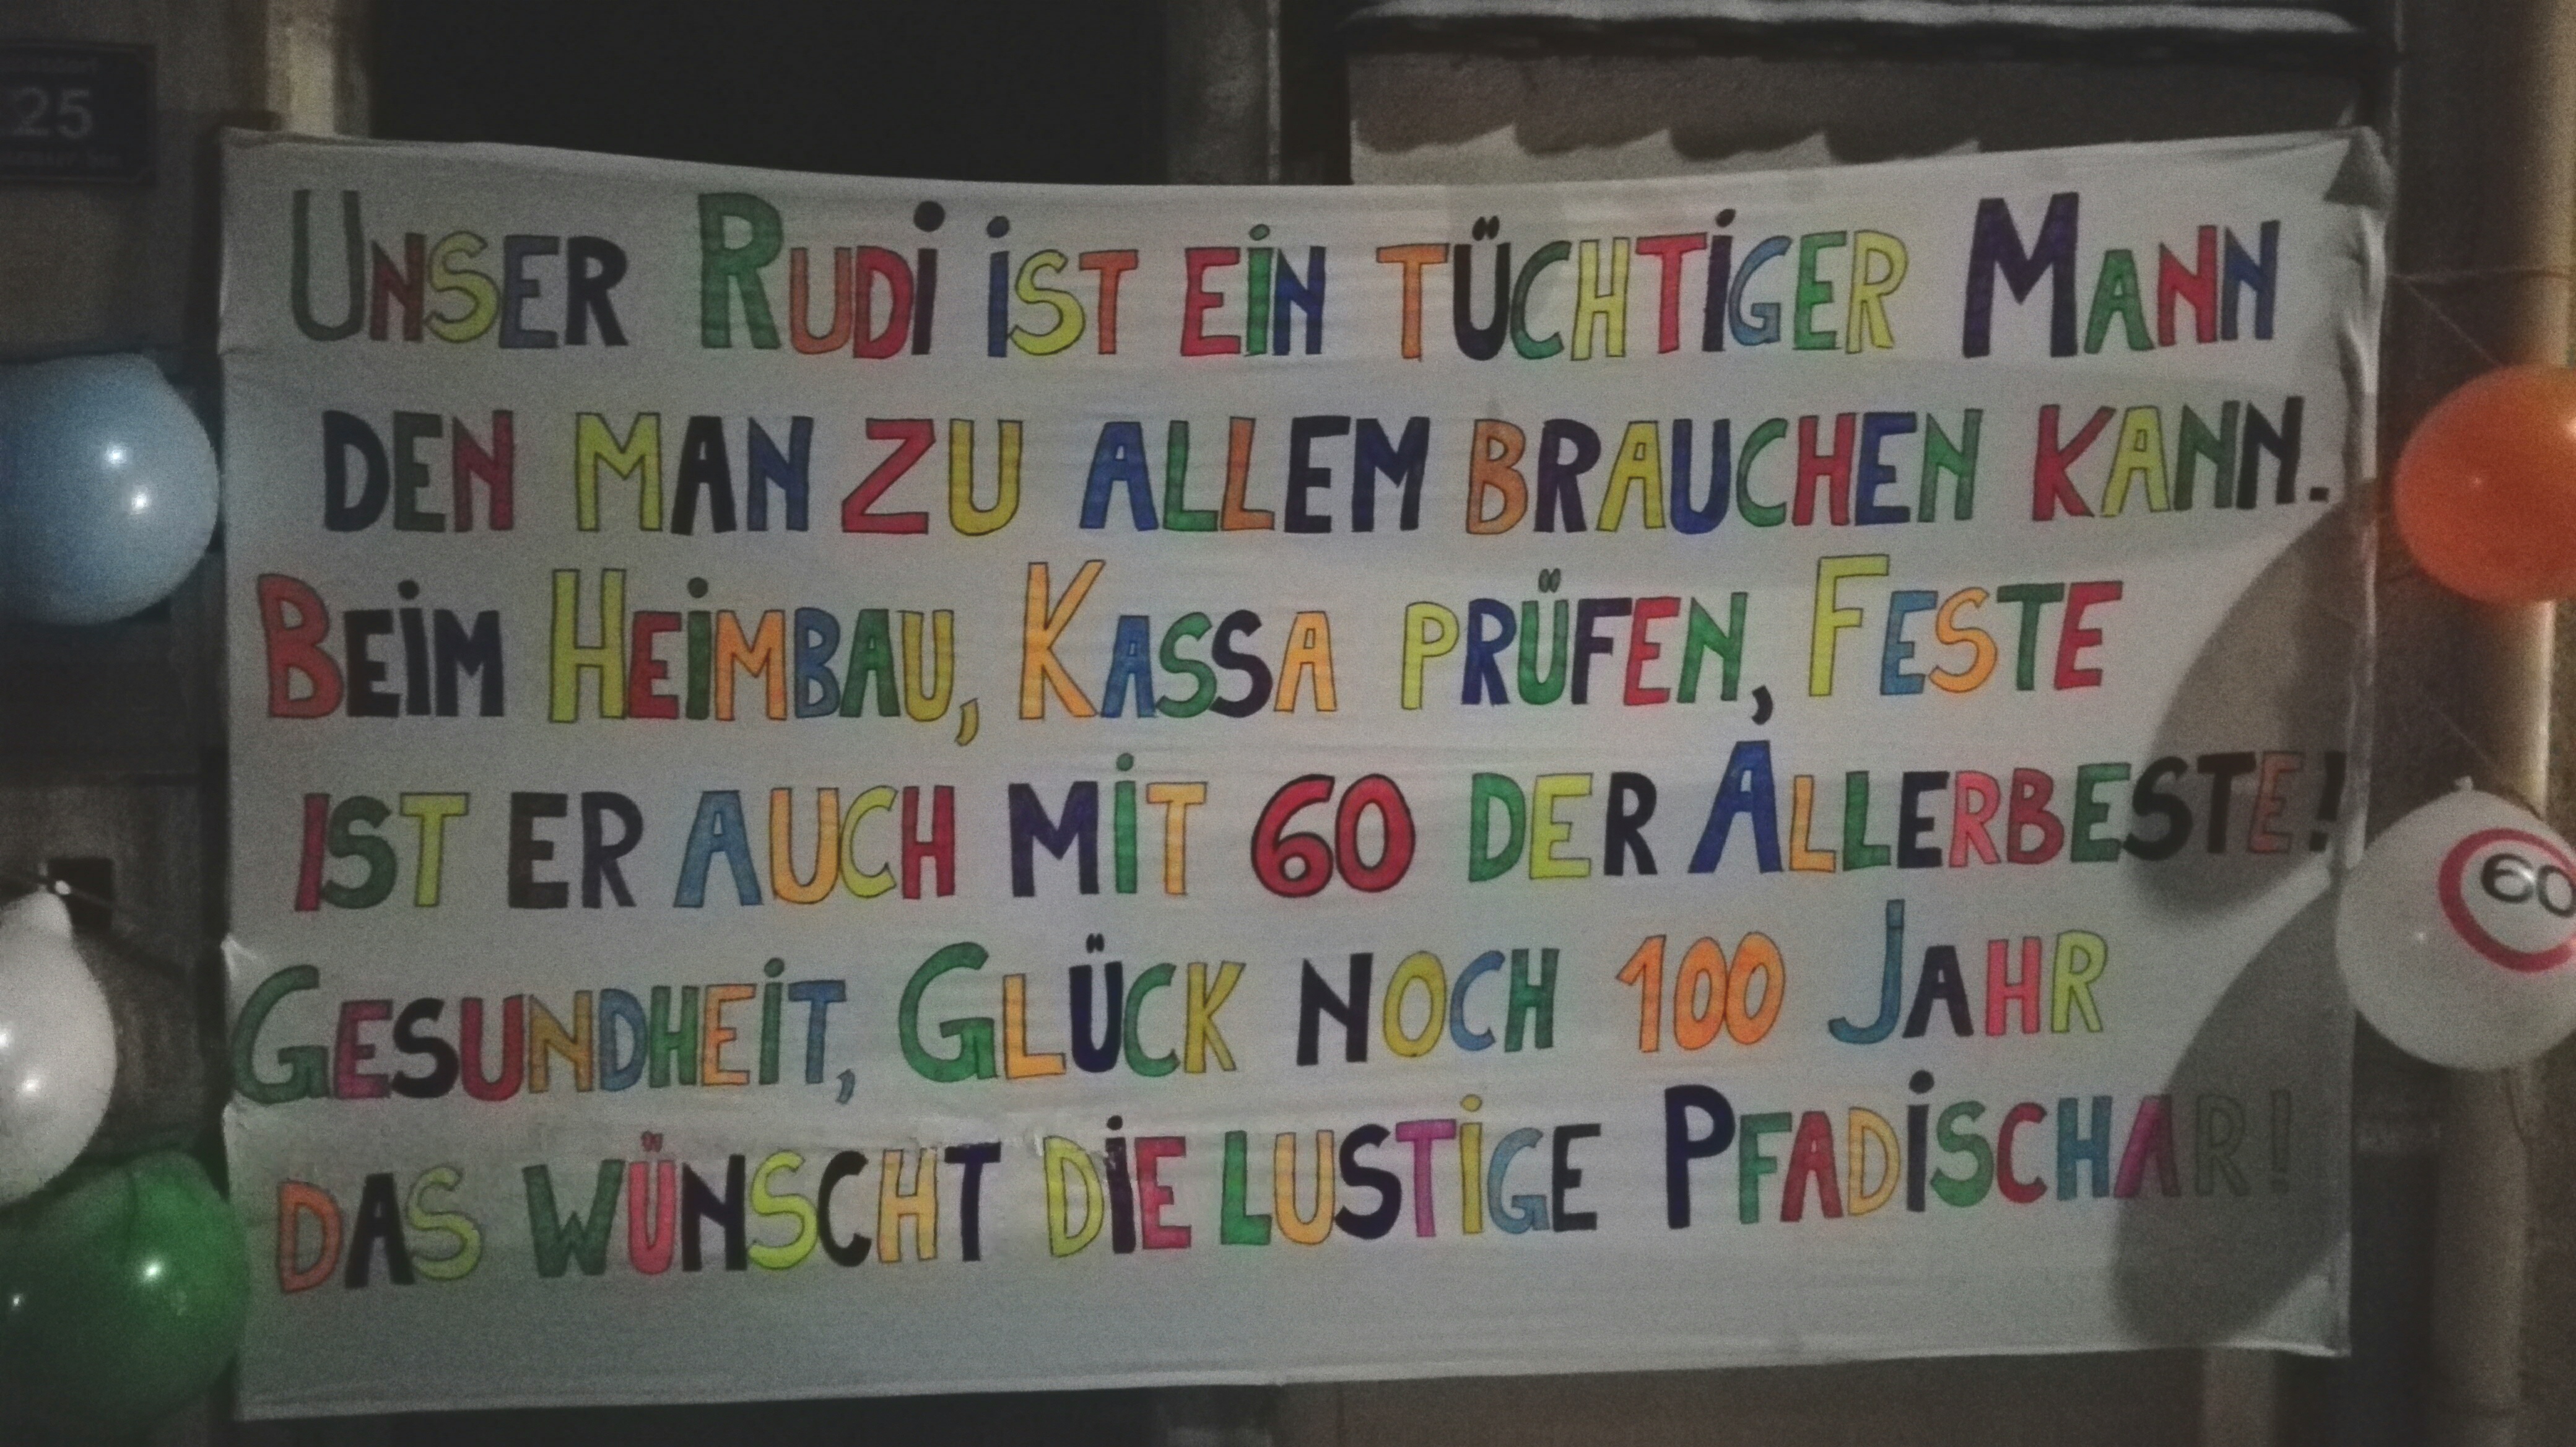 25
UNSER RUDI IST EIN TÜCHTIGER MANN
DEN MAN ZU ALLEM BRAUCHEN KANN.
BEIM HEIMBAU, KASSA PRÜFEN, FESTE
IST ER AUCH MIT 60 DER ALLERBESTE!
GESUNDHEIT, GLÜCK NOCH 100 JAHR
DAS WÜNSCHT DIE LUSTIGE PFADISCHAR!
60